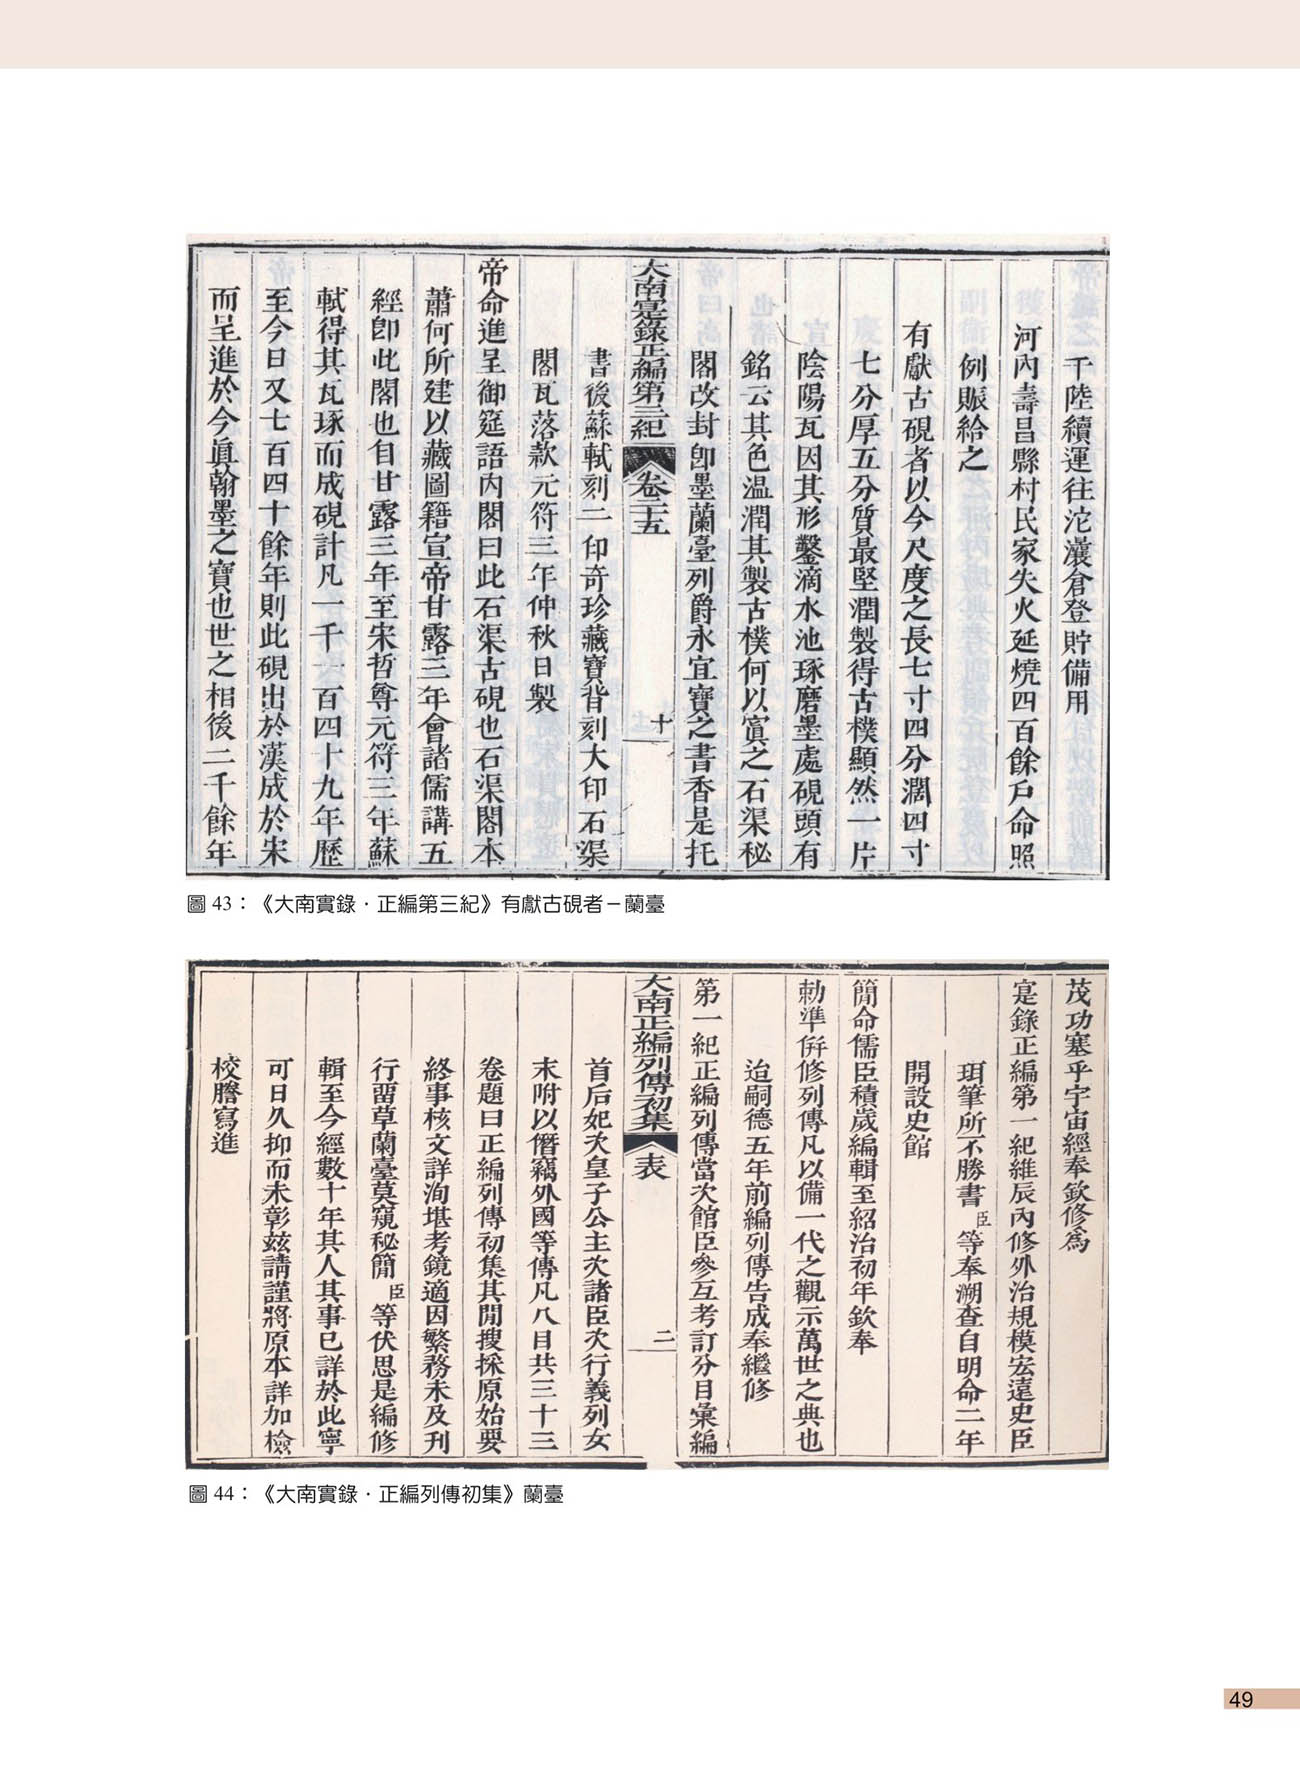 千陸續運往沱灢倉登貯備用
河內壽昌縣村民家失火延燒四百餘戶命照
例賑給之
有獻古硯者以今尺度之長七寸四分濶四寸
七分厚五分質最堅潤製得古樸顯然一片
陰陽瓦因其形鑿滴水池琢磨墨處硯頭有
銘云其色温潤其製古樸何以寘之石渠秘
閣改封卽墨蘭臺列爵永宜寶之書香是托
大南寔錄正編第三紀 卷二十五 十
書後蘇軾刻二印奇珍藏寶背刻大印石渠
閣瓦落款元符三年仲秋日製
帝命進呈御筵語內閣曰此石渠古硯也石渠閣本
蕭何所建以藏圖籍宣帝甘露三年會諸儒講五
經卽此閣也自甘露三年至宋哲尊元符三年蘇
軾得其瓦琢而成硯計凡一千一百四十九年歷
至今日又七百四十餘年則此硯出於漢成於宋
而呈進於今眞翰墨之寶也世之相後二千餘年
圖 43：《大南實錄．正編第三紀》有獻古硯者－蘭臺
茂功塞乎宇宙經奉欽修爲
寔錄正編第一紀維辰內修外治規模宏遠史臣
珥筆所不勝書臣等奉溯查自明命二年
開設史館
簡命儒臣積歲編輯至紹治初年欽奉
勅準併修列傳凡以備一代之觀示萬世之典也
迨嗣德五年前編列傳告成奉繼修
第一紀正編列傳當次館臣參互考訂分目彙編
大南正編列傳初集 表 二
首后妃次皇子公主次諸臣次行義列女
末附以僭竊外國等傳凡八目共三十三
卷題曰正編列傳初集其閒搜採原始要
終事核文詳洵堪考鏡適因繁務未及刊
行畱草蘭臺莫窺秘簡臣等伏思是編修
輯至今經數十年其人其事已詳於此寧
可日久抑而未彰玆請謹將原本詳加檢
校謄寫進
圖 44：《大南實錄．正編列傳初集》蘭臺
49